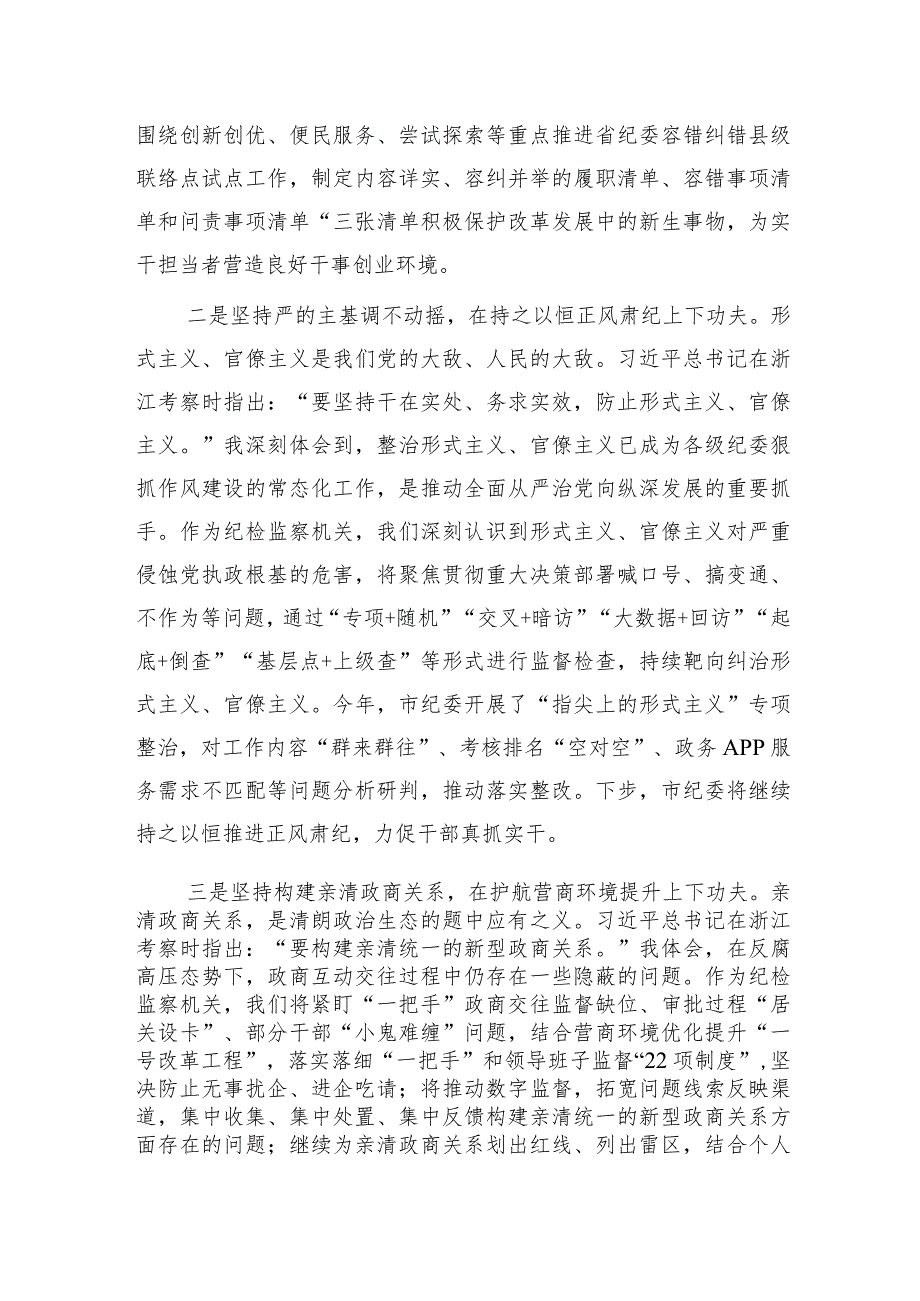 围绕创新创优、便民服务、尝试探索等重点推进省纪委容错纠错县级
联络点试点工作，制定内容详实、容纠并举的履职清单、容错事项清
单和问责事项清单“三张清单积极保护改革发展中的新生事物，为实
干担当者营造良好干事创业环境。
二是坚持严的主基调不动摇，在持之以恒正风肃纪上下功夫。形
式主义、官僚主义是我们党的大敌、人民的大敌。习近平总书记在浙
江考察时指出：“要坚持干在实处、务求实效，防止形式主义、官僚
主义。”我深刻体会到，整治形式主义、官僚主义已成为各级纪委狠
抓作风建设的常态化工作，是推动全面从严治党向纵深发展的重要抓
手。作为纪检监察机关，我们深刻认识到形式主义、官僚主义对严重
侵蚀党执政根基的危害，将聚焦贯彻重大决策部署喊口号、搞变通、
不作为等问题，通过“专项+随机”“交叉+暗访”“大数据+回访”“起
底+倒查”“基层点+上级查”等形式进行监督检查，持续靶向纠治形
式主义、官僚主义。今年，市纪委开展了“指尖上的形式主义”专项
整治，对工作内容“群来群往”、考核排名“空对空”、政务 APP 服
务需求不匹配等问题分析研判，推动落实整改。下步，市纪委将继续
持之以恒推进正风肃纪，力促干部真抓实干。
三是坚持构建亲清政商关系，在护航营商环境提升上下功夫。亲
清政商关系，是清朗政治生态的题中应有之义。习近平总书记在浙江
考察时指出：“要构建亲清统一的新型政商关系。”我体会，在反腐
高压态势下，政商互动交往过程中仍存在一些隐蔽的问题。作为纪检
监察机关，我们将紧盯“一把手”政商交往监督缺位、审批过程“居
关设卡”、部分干部“小鬼难缠”问题，结合营商环境优化提升“一
号改革工程”，落实落细“一把手”和领导班子监督“22 项制度”,坚
决防止无事扰企、进企吃请；将推动数字监督，拓宽问题线索反映渠
道，集中收集、集中处置、集中反馈构建亲清统一的新型政商关系方
面存在的问题；继续为亲清政商关系划出红线、列出雷区，结合个人